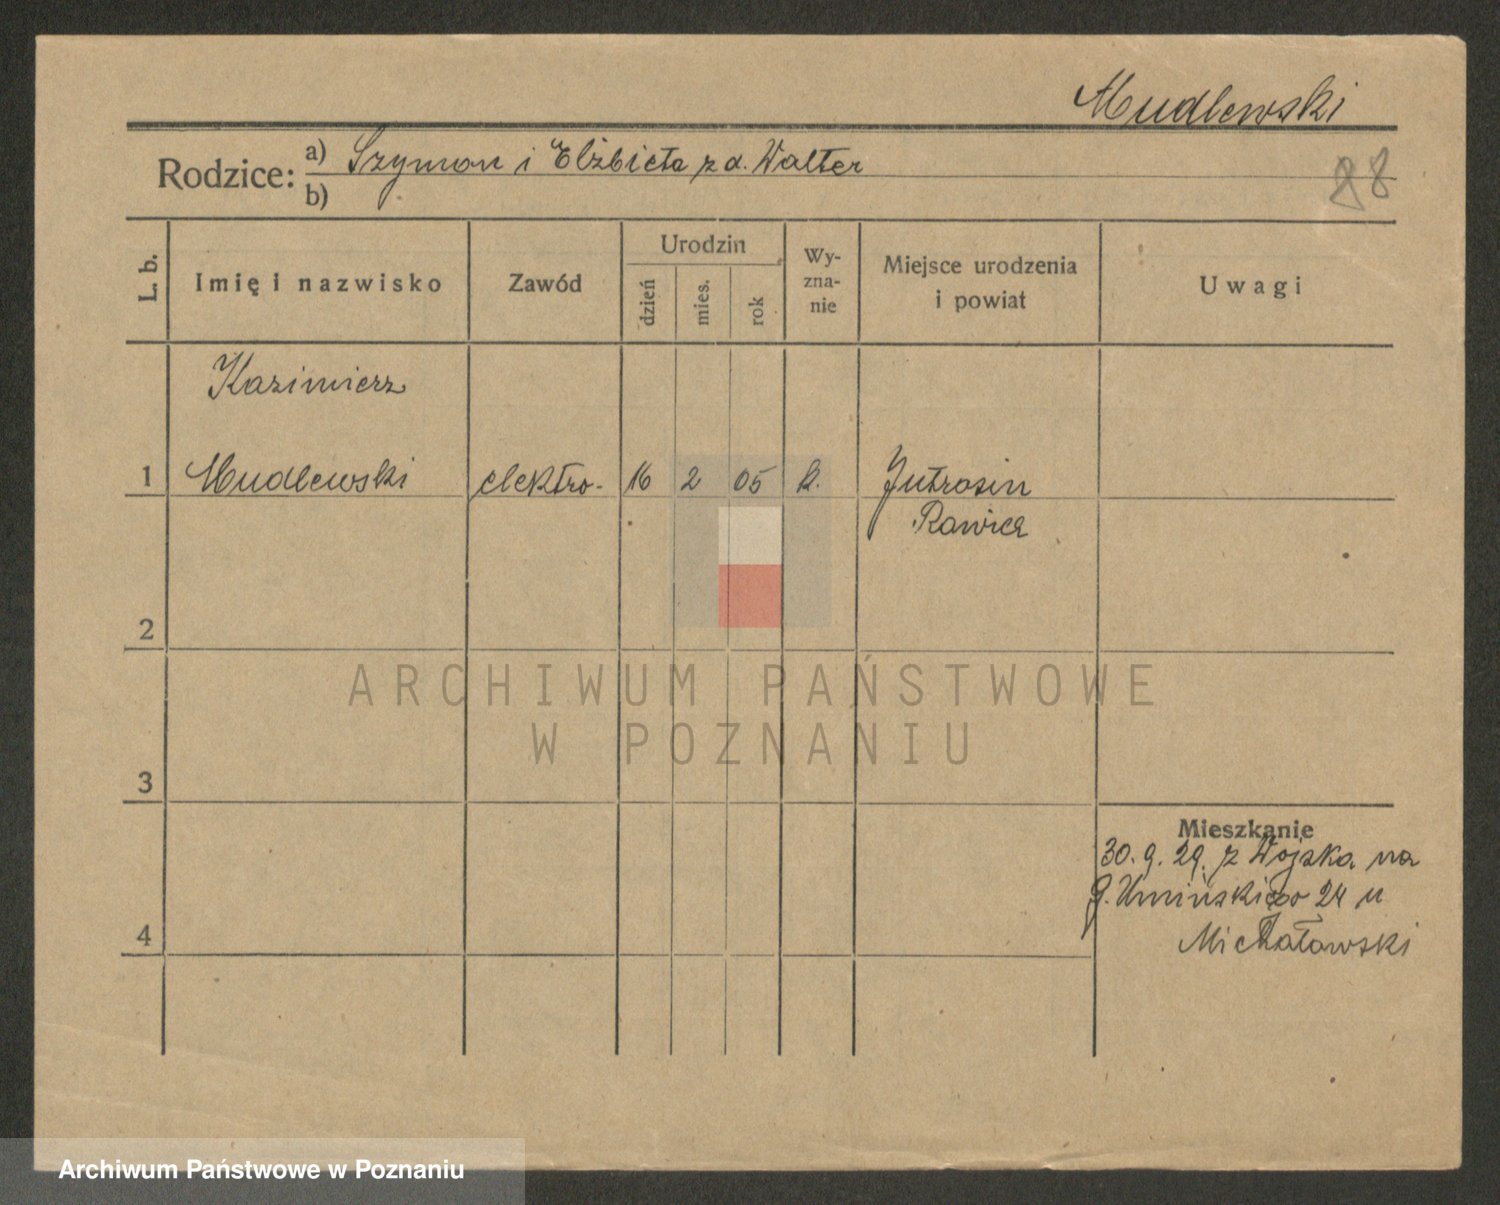 Mudlewski
Rodzice: a) Szymon i Elżbieta z d. Walter
b)
88
L. b.
Imię i nazwisko
Zawód
Urodzin
dzień
mies.
rok
Wy-
zna-
nie
Miejsce urodzenia
i powiat
Uwagi
Kazimierz
1 Mudlewski elektro- 16 2 05 k. Jutrosin
Rawicz
2
3
Mieszkanie
30.9.29. z Wojska na
g. Umińskiego 24 u
Michałowski
4
ARCHIWUM PAŃSTWOWE
W POZNANIU
Archiwum Państwowe w Poznaniu